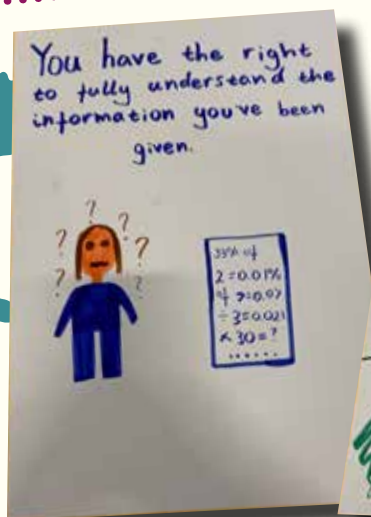 You have the right
to fully understand the
information you've been
given.
? ? ? ? ? ?
33% of
2 = 0.01%
÷ 3 = 0.021
× 30 = ?
......